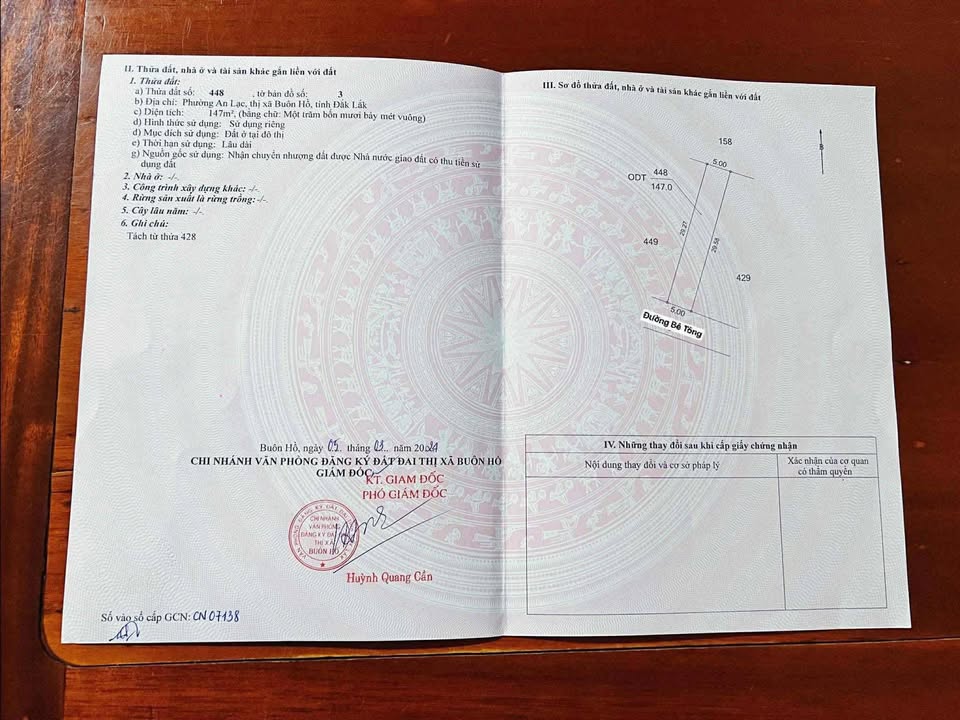 II. Thửa đất, nhà ở và tài sản khác gắn liền với đất
1. Thửa đất:
a) Thửa đất số: 448 , tờ bản đồ số: 3
b) Địa chỉ: Phường An Lạc, thị xã Buôn Hồ, tỉnh Đắk Lắk
c) Diện tích: 147m², (bằng chữ: Một trăm bốn mươi bảy mét vuông)
d) Hình thức sử dụng: Sử dụng riêng
đ) Mục đích sử dụng: Đất ở tại đô thị
e) Thời hạn sử dụng: Lâu dài
g) Nguồn gốc sử dụng: Nhận chuyển nhượng đất được Nhà nước giao đất có thu tiền sử
dụng đất
2. Nhà ở: -/-
3. Công trình xây dựng khác: -/-
4. Rừng sản xuất là rừng trồng: -/-
5. Cây lâu năm: -/-
6. Ghi chú:
Tách từ thửa 428
Buôn Hồ, ngày 05 tháng 03 năm 2021
CHI NHÁNH VĂN PHÒNG ĐĂNG KÝ ĐẤT ĐAI THỊ XÃ BUÔN HỒ
GIÁM ĐỐC
KT. GIÁM ĐỐC
PHÓ GIÁM ĐỐC
CHI NHÁNH
VĂN PHÒNG
ĐĂNG KÝ ĐẤT ĐAI
THỊ XÃ
BUÔN HỒ
Huỳnh Quang Cần
Số vào sổ cấp GCN: CN07138
III. Sơ đồ thửa đất, nhà ở và tài sản khác gắn liền với đất
B
158
5.00
ODT 448
147.0
29.27
29.58
449
429
5.00
Đường Bê Tông
IV. Những thay đổi sau khi cấp giấy chứng nhận
Nội dung thay đổi và cơ sở pháp lý
Xác nhận của cơ quan
có thẩm quyền